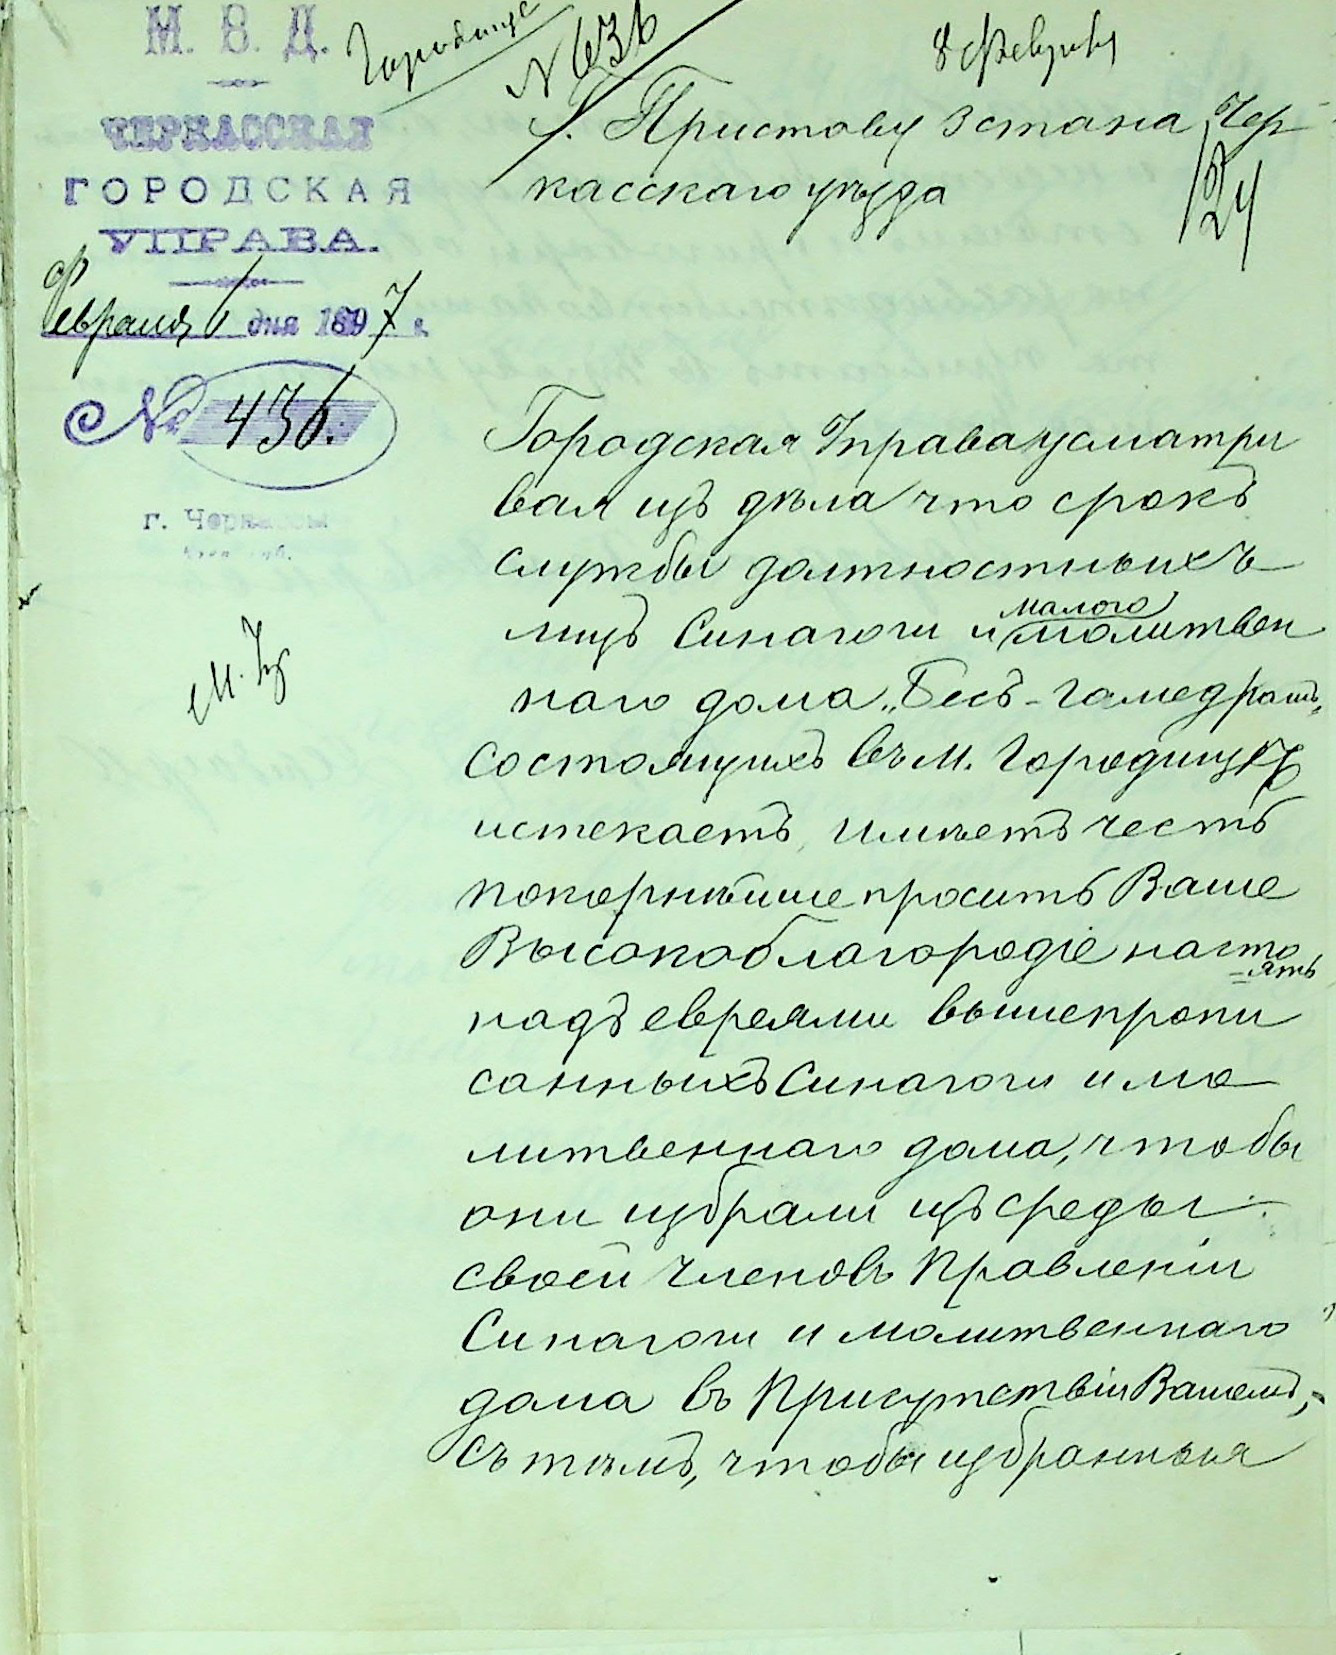 М. В. Д.
ЧЕРКАССКАЯ
ГОРОДСКАЯ
УПРАВА.
Февраля 6 дня 1897 г.
№ 436.
г. Черкассы
Городище
№ 636
8 Февраля
Г. Приставу 3 стана Чер
касскаго уѣзда
24
Городская Управа усматри
вая изъ дѣла что срокъ
службы должностныхъ
лицъ Синагоги и малого молитвен
наго дома „Бесъ-гамедрашъ„
состоящихъ въ м. Городищѣ
истекаетъ, имѣетъ честь
покорнѣйше просить Ваше
Высокоблагородіе насто
=ять
надъ евреями вышепропи
санныхъ Синагоги и мо
литвеннаго дома, чтобы
они избрали изъ среды
своей членовъ Правленія
Синагоги и молитвеннаго
дома въ Присутствіи Вашемъ,
съ тѣмъ, чтобы избранныя